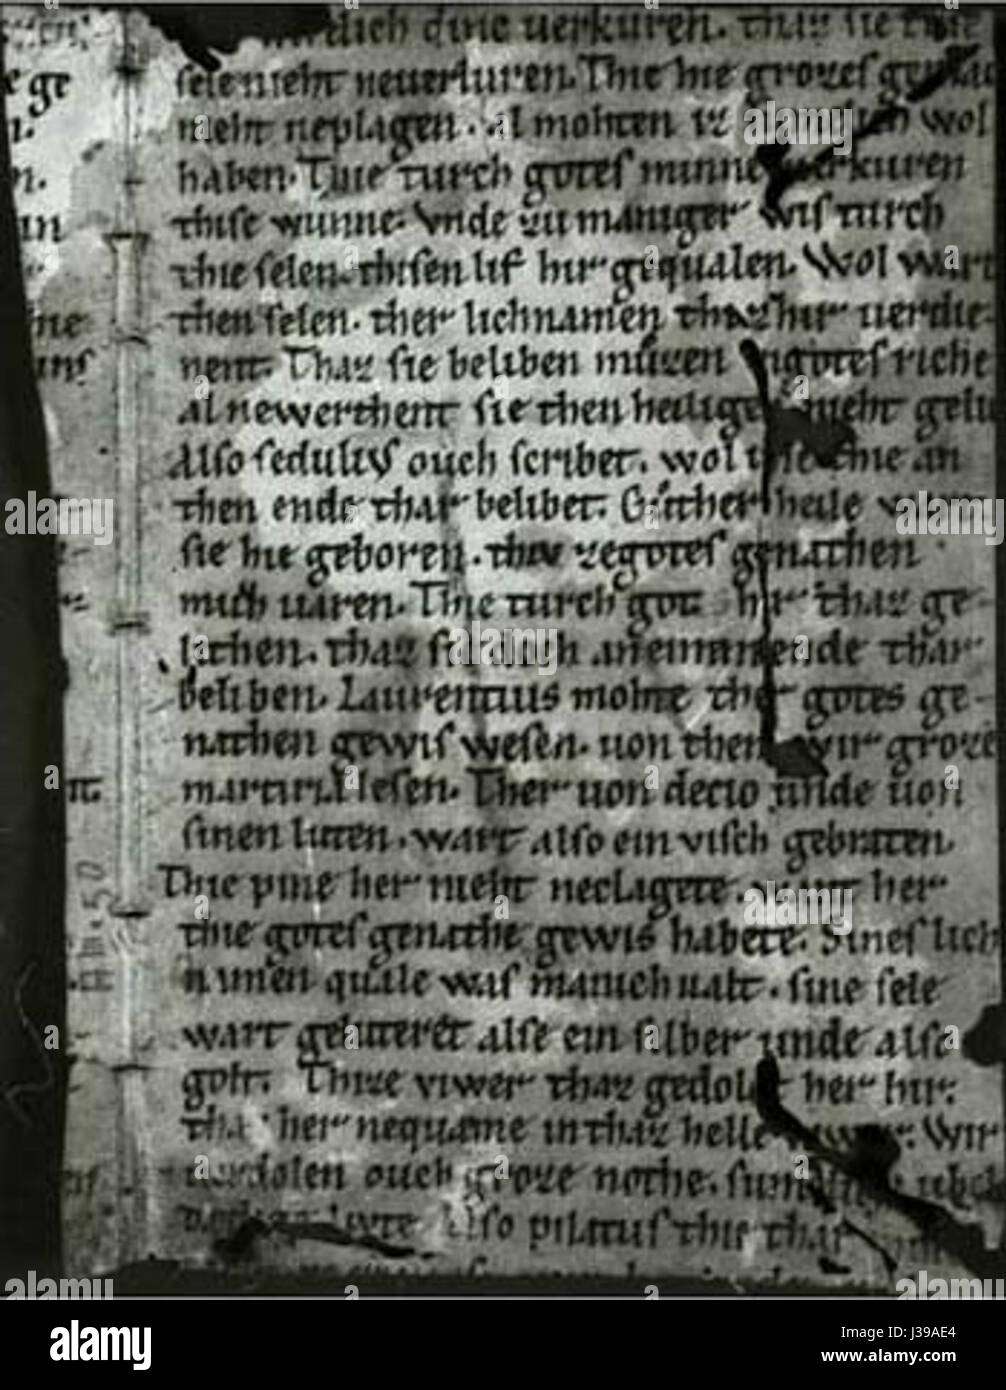 dine uerkuren. thaz sie
sele nieht neuerluren. Thie hie grozes
nieht neplagen. al mohten iz wol
haben. Thie turch gotes minne uerkuren
thise wunne. Vnde zu maniger wis turch
thie selen. thisen lif hir gequalen. Wol wart
then selen. ther lichnamen thaz hir uerdie-
nent. Thaz sie beliben muzen in gotes riche
al newerthent sie then heiligen nieht
Also seduliꝰ ouch scribet. wol thie an
then ende thar belibet. Gůther heile
sie hie geboren. thie ze gotes genathen
uaren. Thie turch got hir thaz ge-
lathen. thaz sie ouch an einin ende thar
beliben. Laurentius mohte ther gotes ge-
nathen gewis wesen. uon then wir groze
martiria lesen. Ther uon decio unde uon
sinen luten. wart also ein visch gebraten.
Thie pine her nieht neclagete. want her
thie gotes genathe gewis habete. Sines lich
namen quale was manichualt. sine sele
wart geluteret alse ein silber unde alse
golt. Thize viwer thaz gedolet her hir.
thaz her nequame in thaz helle viwer. Wir
dolen ouch groze nothe.
lute. Also pilatus thie thar
ge
in
Hn. 50
alamy
Image ID: J39AE4
www.alamy.com